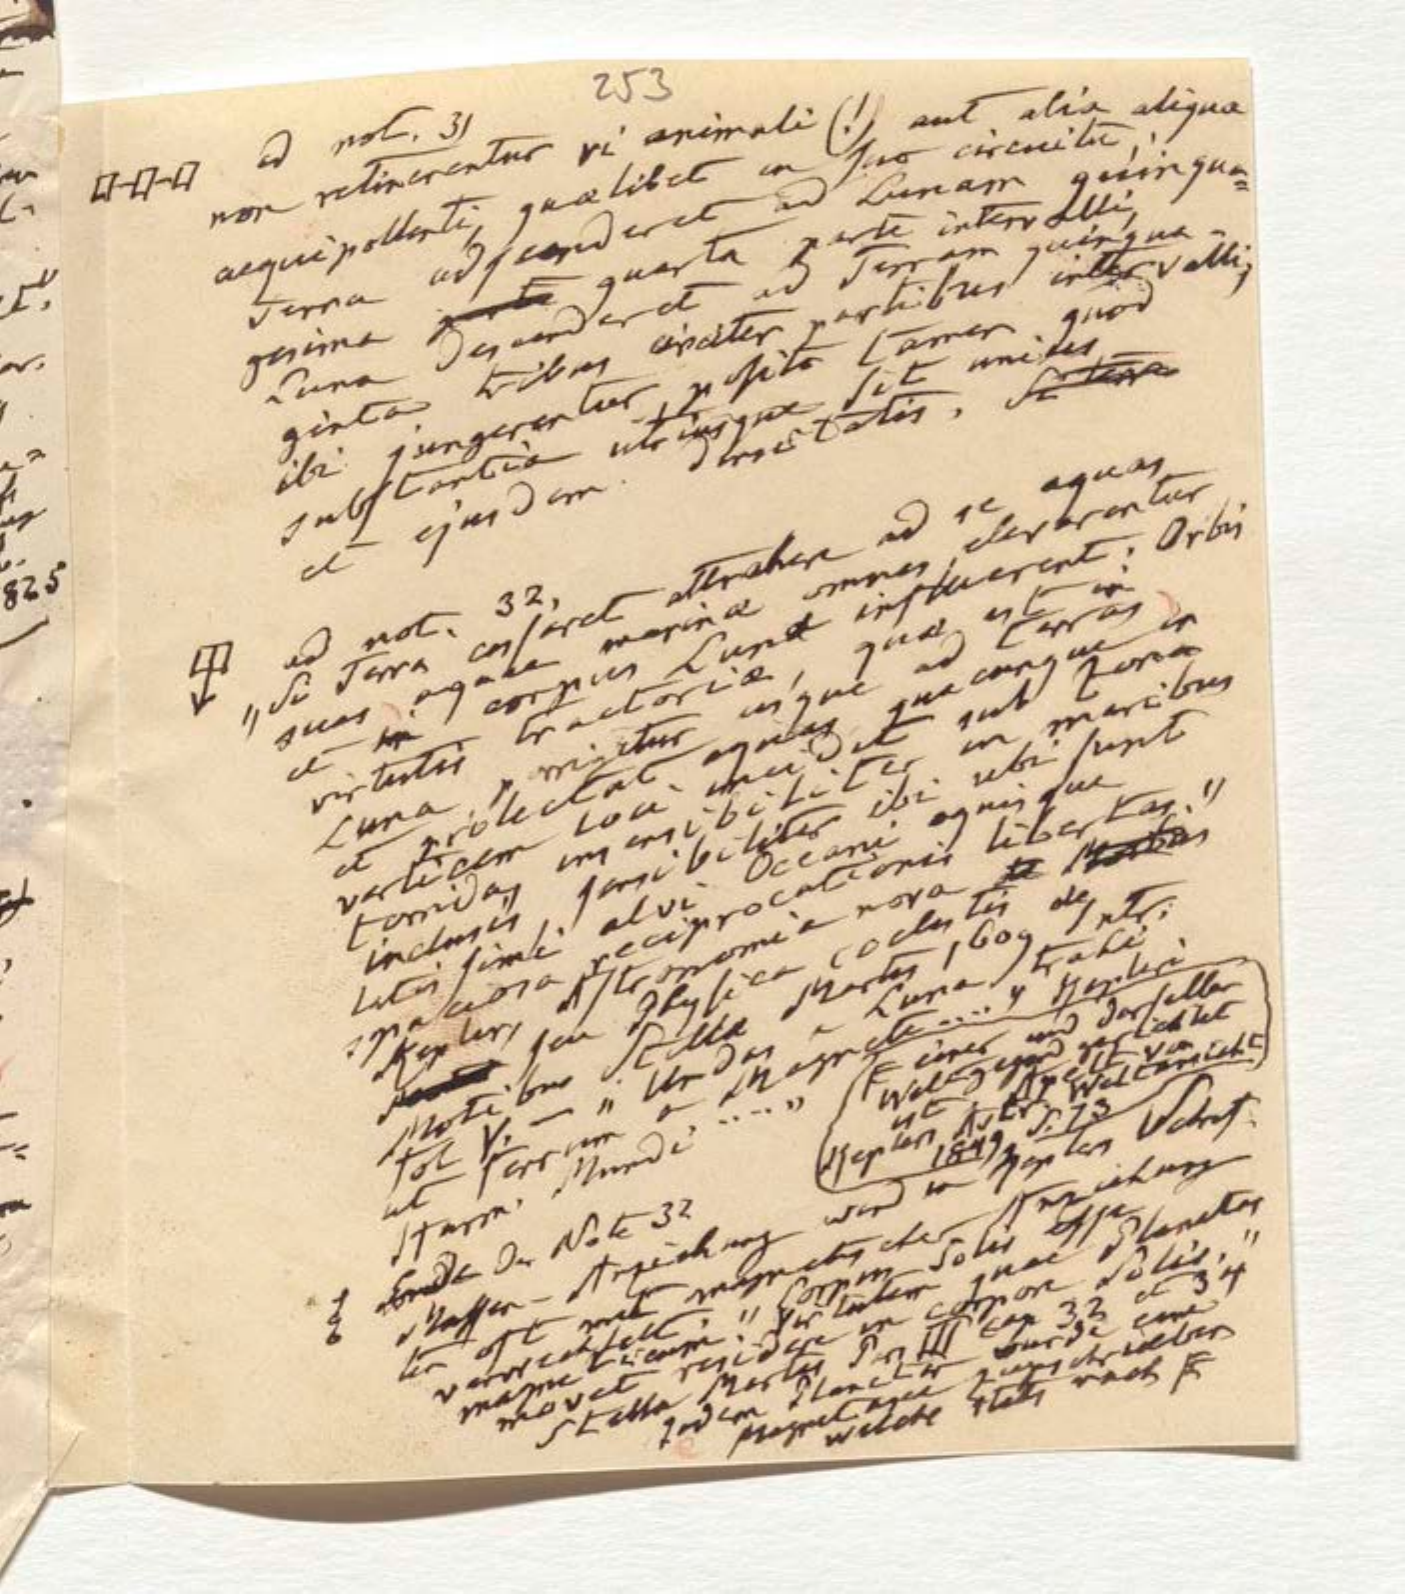 253
ad not. 31
non retinerentur vi animali (!) aut alia aliqua
aequipollenti, quælibet in suo circuitu,
Terra adscenderet ad Lunam quinqua=
gesima quarta parte intervalli,
Luna descenderet ad Terram quinqua-
ginta tribus circiter partibus intervalli;
ibi jungerentur, posito tamen quod
substantia utriusque sit unius
et ejusdem densitatis.
ad not. 32,
"Si Terra cessaret attrahere ad se aquas
suas aquae marinæ omnes elevarentur
et in corpus Lunæ influerent: Orbis
virtutis tractoriæ, quæ est in
Luna porrigitur usque ad terras
et prolectat aquas quacunque in
verticem loci incidit sub Zonam
torridam insensibiliter in maribus
inclusis, sensibiliter ibi ubi sunt
latissimi alvi Oceani aquisque
spaciosa reciprocationis libertas."
Kepler, Astronomia nova
seu Physica coelestis de
Motibus Stellæ Martis 1609 Intr.
fol V. — "Undas a Luna trahi
ut ferrum a Magnete .... " Kepleri
Harm. Mundi ....."
F einer und derselben
Weltgegend gerichtet
ist. Apelt von
Keplers Astr. Weltansicht
1849 S. 73
Ende der Note 32
Massen-Anziehung wird in Keplers Schrif-
ten oft mit magnetischer Anziehung
verwechselt: "Corpus Solis esse
magneticum. Virtutem quae Planetas
movet residere in corpore Solis."
Stella Martis Pars III cap 32 et 34
Jedem Planeten wurde eine
Magnetaxe zugeschrieben
welche stets nach F
825